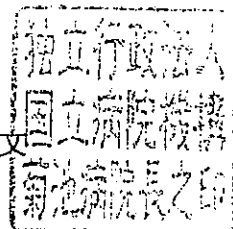 独立行政法人
国立病院機構
菊池病院長之印
文